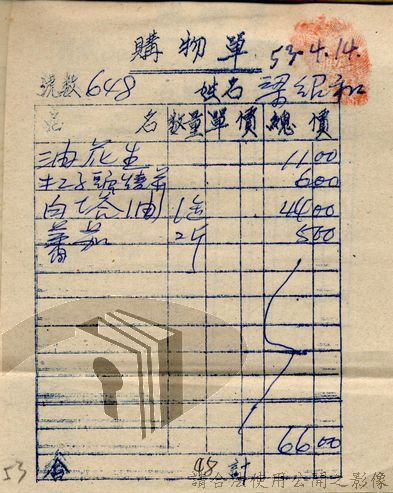 購物單 53.4.14.
號數 648 姓名 梁紹和
品名 數量 單價 總價
油花生 1100
600
白塔油 1盒 4400
蕃茄 2斤 500
6600
53 合 計
請合法使用公開之影像